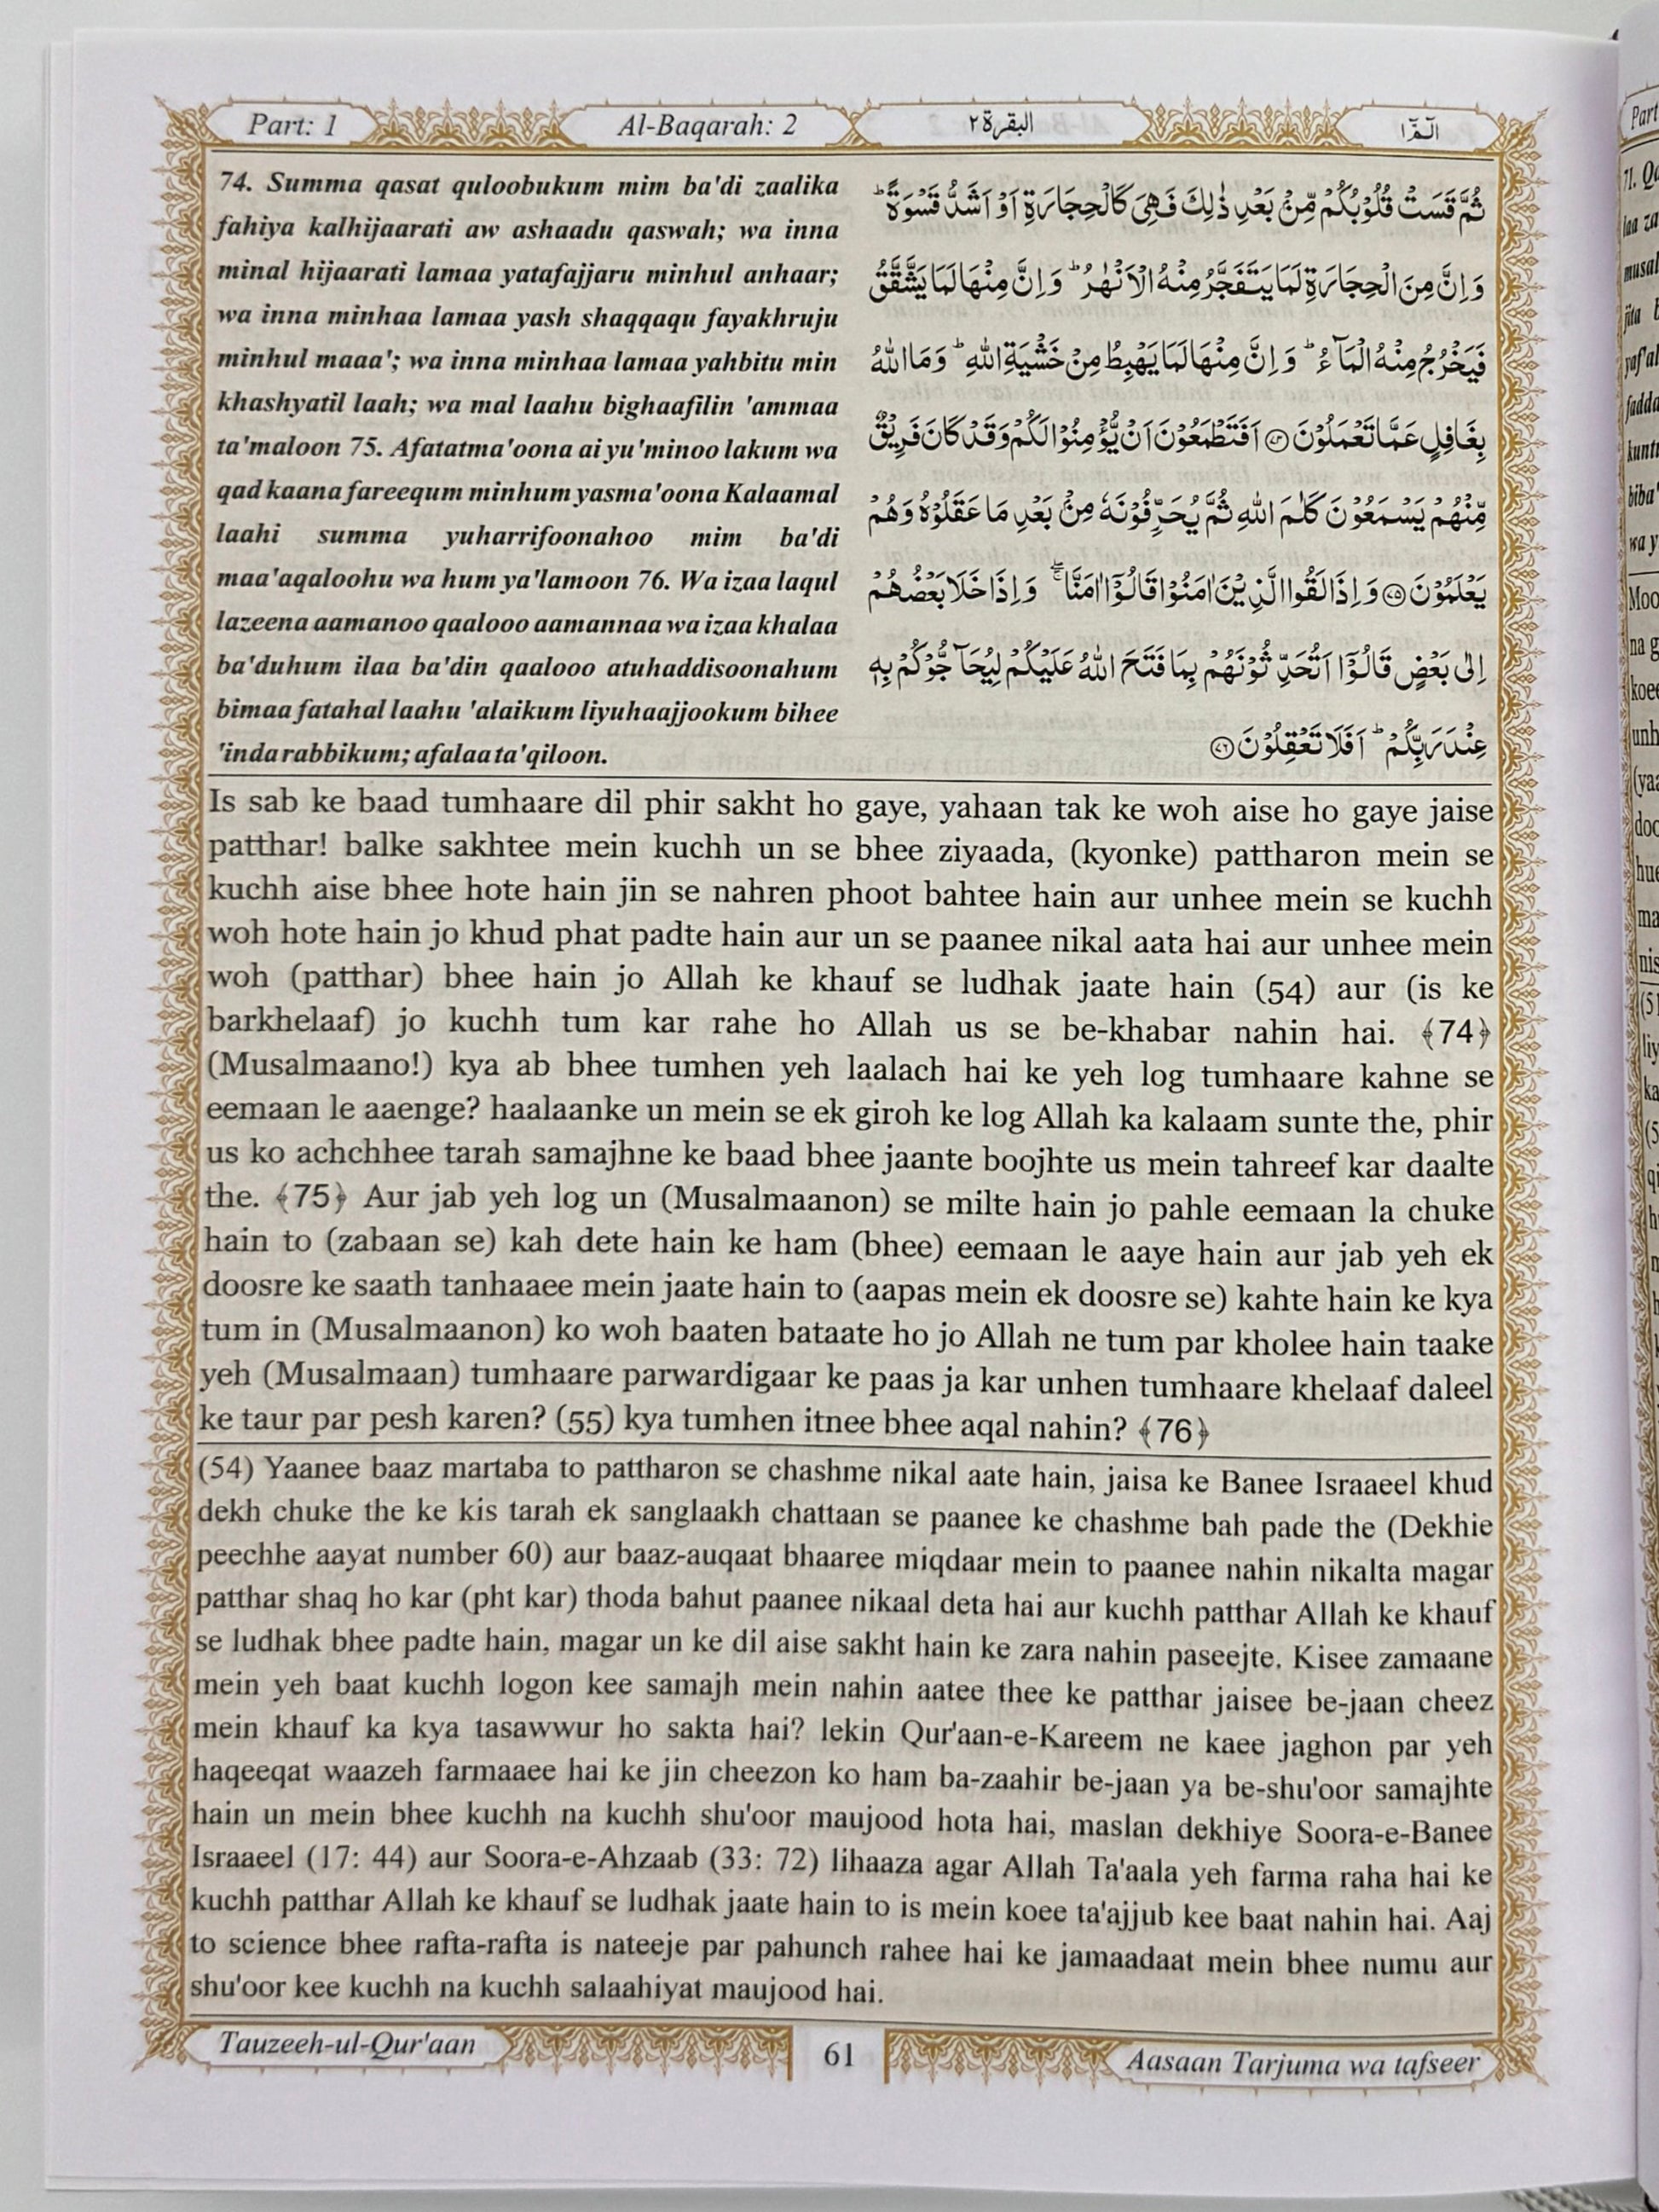 Part: 1
Al-Baqarah: 2
البقرة ٢
الٓمّٓ ١
74. Summa qasat quloobukum mim ba'di zaalika
fahiya kalhijaarati aw ashaadu qaswah; wa inna
minal hijaarati lamaa yatafajjaru minhul anhaar;
wa inna minhaa lamaa yash shaqqaqu fayakhruju
minhul maaa'; wa inna minhaa lamaa yahbitu min
khashyatil laah; wa mal laahu bighaafilin 'ammaa
ta'maloon 75. Afatatma'oona ai yu'minoo lakum wa
qad kaana fareequm minhum yasma'oona Kalaamal
laahi summa yuharrifoonahoo mim ba'di
maa'aqaloohu wa hum ya'lamoon 76. Wa izaa laqul
lazeena aamanoo qaalooo aamannaa wa izaa khalaa
ba'duhum ilaa ba'din qaalooo atuhaddisoonahum
bimaa fatahal laahu 'alaikum liyuhaajjookum bihee
'inda rabbikum; afalaa ta'qiloon.
ثُمَّ قَسَتْ قُلُوْبُكُمْ مِّنْۢ بَعْدِ ذٰلِكَ فَهِيَ كَالْحِجَارَةِ اَوْ اَشَدُّ قَسْوَةً ؕ
وَ اِنَّ مِنَ الْحِجَارَةِ لَمَا يَتَفَجَّرُ مِنْهُ الْاَنْهٰرُ ؕ وَ اِنَّ مِنْهَا لَمَا يَشَّقَّقُ
فَيَخْرُجُ مِنْهُ الْمَآءُ ؕ وَ اِنَّ مِنْهَا لَمَا يَهْبِطُ مِنْ خَشْيَةِ اللّٰهِ ؕ وَ مَا اللّٰهُ
بِغَافِلٍ عَمَّا تَعْمَلُوْنَ ﴿۷۴﴾ اَفَتَطْمَعُوْنَ اَنْ يُّؤْمِنُوْا لَكُمْ وَ قَدْ كَانَ فَرِيْقٌ
مِّنْهُمْ يَسْمَعُوْنَ كَلٰمَ اللّٰهِ ثُمَّ يُحَرِّفُوْنَهٗ مِنْۢ بَعْدِ مَا عَقَلُوْهُ وَ هُمْ
يَعْلَمُوْنَ ﴿۷۵﴾ وَ اِذَا لَقُوا الَّذِيْنَ اٰمَنُوْا قَالُوْۤا اٰمَنَّا ۚۖ وَ اِذَا خَلَا بَعْضُهُمْ
اِلٰى بَعْضٍ قَالُوْۤا اَتُحَدِّثُوْنَهُمْ بِمَا فَتَحَ اللّٰهُ عَلَيْكُمْ لِيُحَآجُّوْكُمْ بِهٖ
عِنْدَ رَبِّكُمْ ؕ اَفَلَا تَعْقِلُوْنَ ﴿۷۶﴾
Is sab ke baad tumhaare dil phir sakht ho gaye, yahaan tak ke woh aise ho gaye jaise
patthar! balke sakhtee mein kuchh un se bhee ziyaada, (kyonke) pattharon mein se
kuchh aise bhee hote hain jin se nahren phoot bahtee hain aur unhee mein se kuchh
woh hote hain jo khud phat padte hain aur un se paanee nikal aata hai aur unhee mein
woh (patthar) bhee hain jo Allah ke khauf se ludhak jaate hain (54) aur (is ke
barkhelaaf) jo kuchh tum kar rahe ho Allah us se be-khabar nahin hai. ﴾74﴿
(Musalmaano!) kya ab bhee tumhen yeh laalach hai ke yeh log tumhaare kahne se
eemaan le aaenge? haalaanke un mein se ek giroh ke log Allah ka kalaam sunte the, phir
us ko achchhee tarah samajhne ke baad bhee jaante boojhte us mein tahreef kar daalte
the. ﴾75﴿ Aur jab yeh log un (Musalmaanon) se milte hain jo pahle eemaan la chuke
hain to (zabaan se) kah dete hain ke ham (bhee) eemaan le aaye hain aur jab yeh ek
doosre ke saath tanhaaee mein jaate hain to (aapas mein ek doosre se) kahte hain ke kya
tum in (Musalmaanon) ko woh baaten bataate ho jo Allah ne tum par kholee hain taake
yeh (Musalmaan) tumhaare parwardigaar ke paas ja kar unhen tumhaare khelaaf daleel
ke taur par pesh karen? (55) kya tumhen itnee bhee aqal nahin? ﴾76﴿
(54) Yaanee baaz martaba to pattharon se chashme nikal aate hain, jaisa ke Banee Israaeel khud
dekh chuke the ke kis tarah ek sanglaakh chattaan se paanee ke chashme bah pade the (Dekhie
peechhe aayat number 60) aur baaz-auqaat bhaaree miqdaar mein to paanee nahin nikalta magar
patthar shaq ho kar (pht kar) thoda bahut paanee nikaal deta hai aur kuchh patthar Allah ke khauf
se ludhak bhee padte hain, magar un ke dil aise sakht hain ke zara nahin paseejte. Kisee zamaane
mein yeh baat kuchh logon kee samajh mein nahin aatee thee ke patthar jaisee be-jaan cheez
mein khauf ka kya tasawwur ho sakta hai? lekin Qur'aan-e-Kareem ne kaee jaghon par yeh
haqeeqat waazeh farmaaee hai ke jin cheezon ko ham ba-zaahir be-jaan ya be-shu'oor samajhte
hain un mein bhee kuchh na kuchh shu'oor maujood hota hai, maslan dekhiye Soora-e-Banee
Israaeel (17: 44) aur Soora-e-Ahzaab (33: 72) lihaaza agar Allah Ta'aala yeh farma raha hai ke
kuchh patthar Allah ke khauf se ludhak jaate hain to is mein koee ta'ajjub kee baat nahin hai. Aaj
to science bhee rafta-rafta is nateeje par pahunch rahee hai ke jamaadaat mein bhee numu aur
shu'oor kee kuchh na kuchh salaahiyat maujood hai.
Tauzeeh-ul-Qur'aan
61
Aasaan Tarjuma wa tafseer